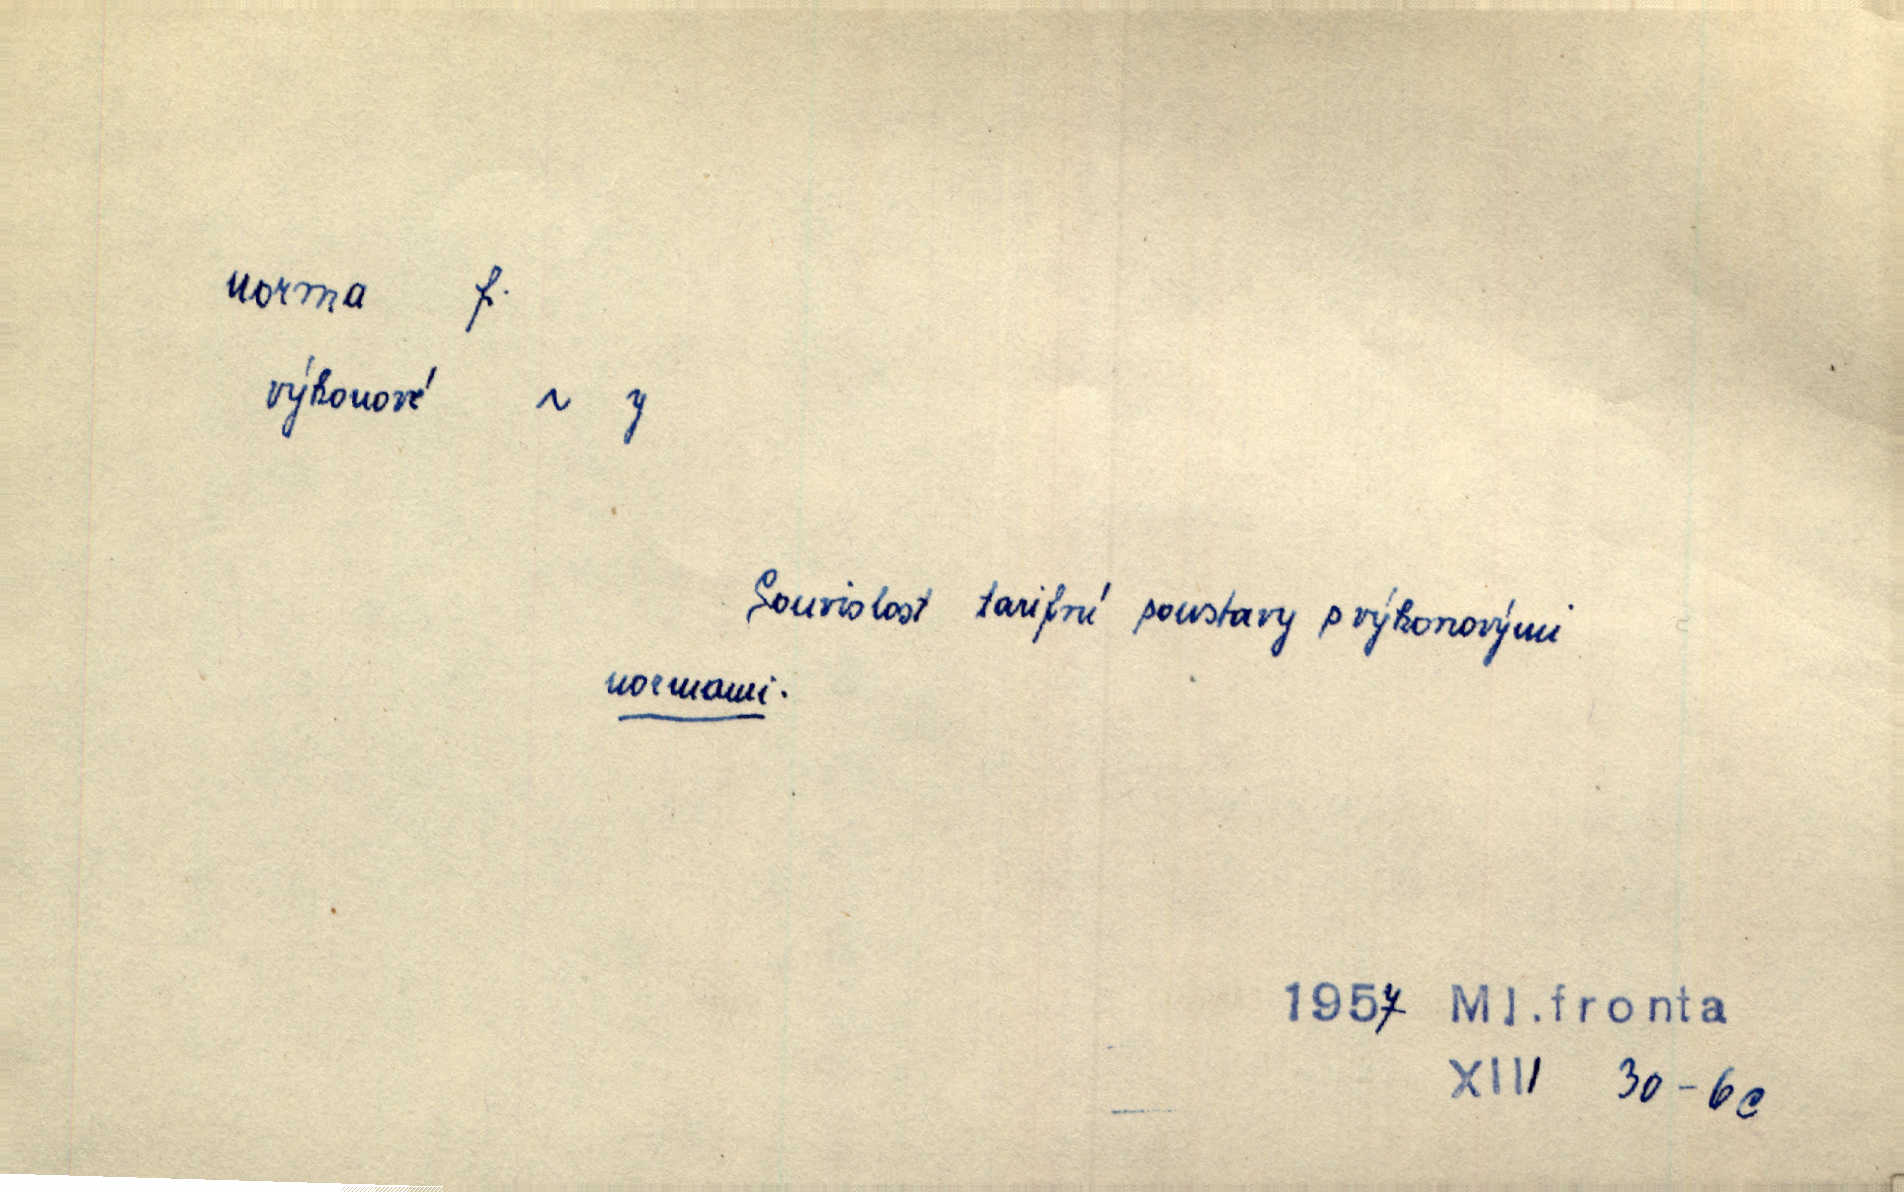 norma f.
výkonové ~ y
Souvislost tarifní soustavy s výkonovými
normami.
1957 Ml.fronta
XIII 30-6c